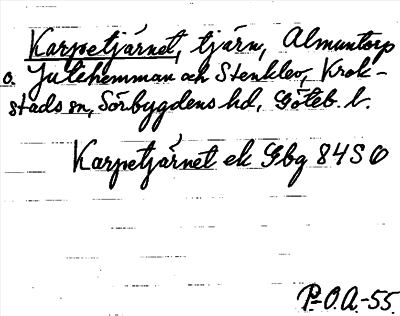 Karpetjärnet, tjärn, Almuntorp
o. Julehemman och Stenklev, Krok-
stads sn, Sörbygdens hd, Göteb. l.
Karpetjärnet ek Gbg 84SO
P-O.A.-55.